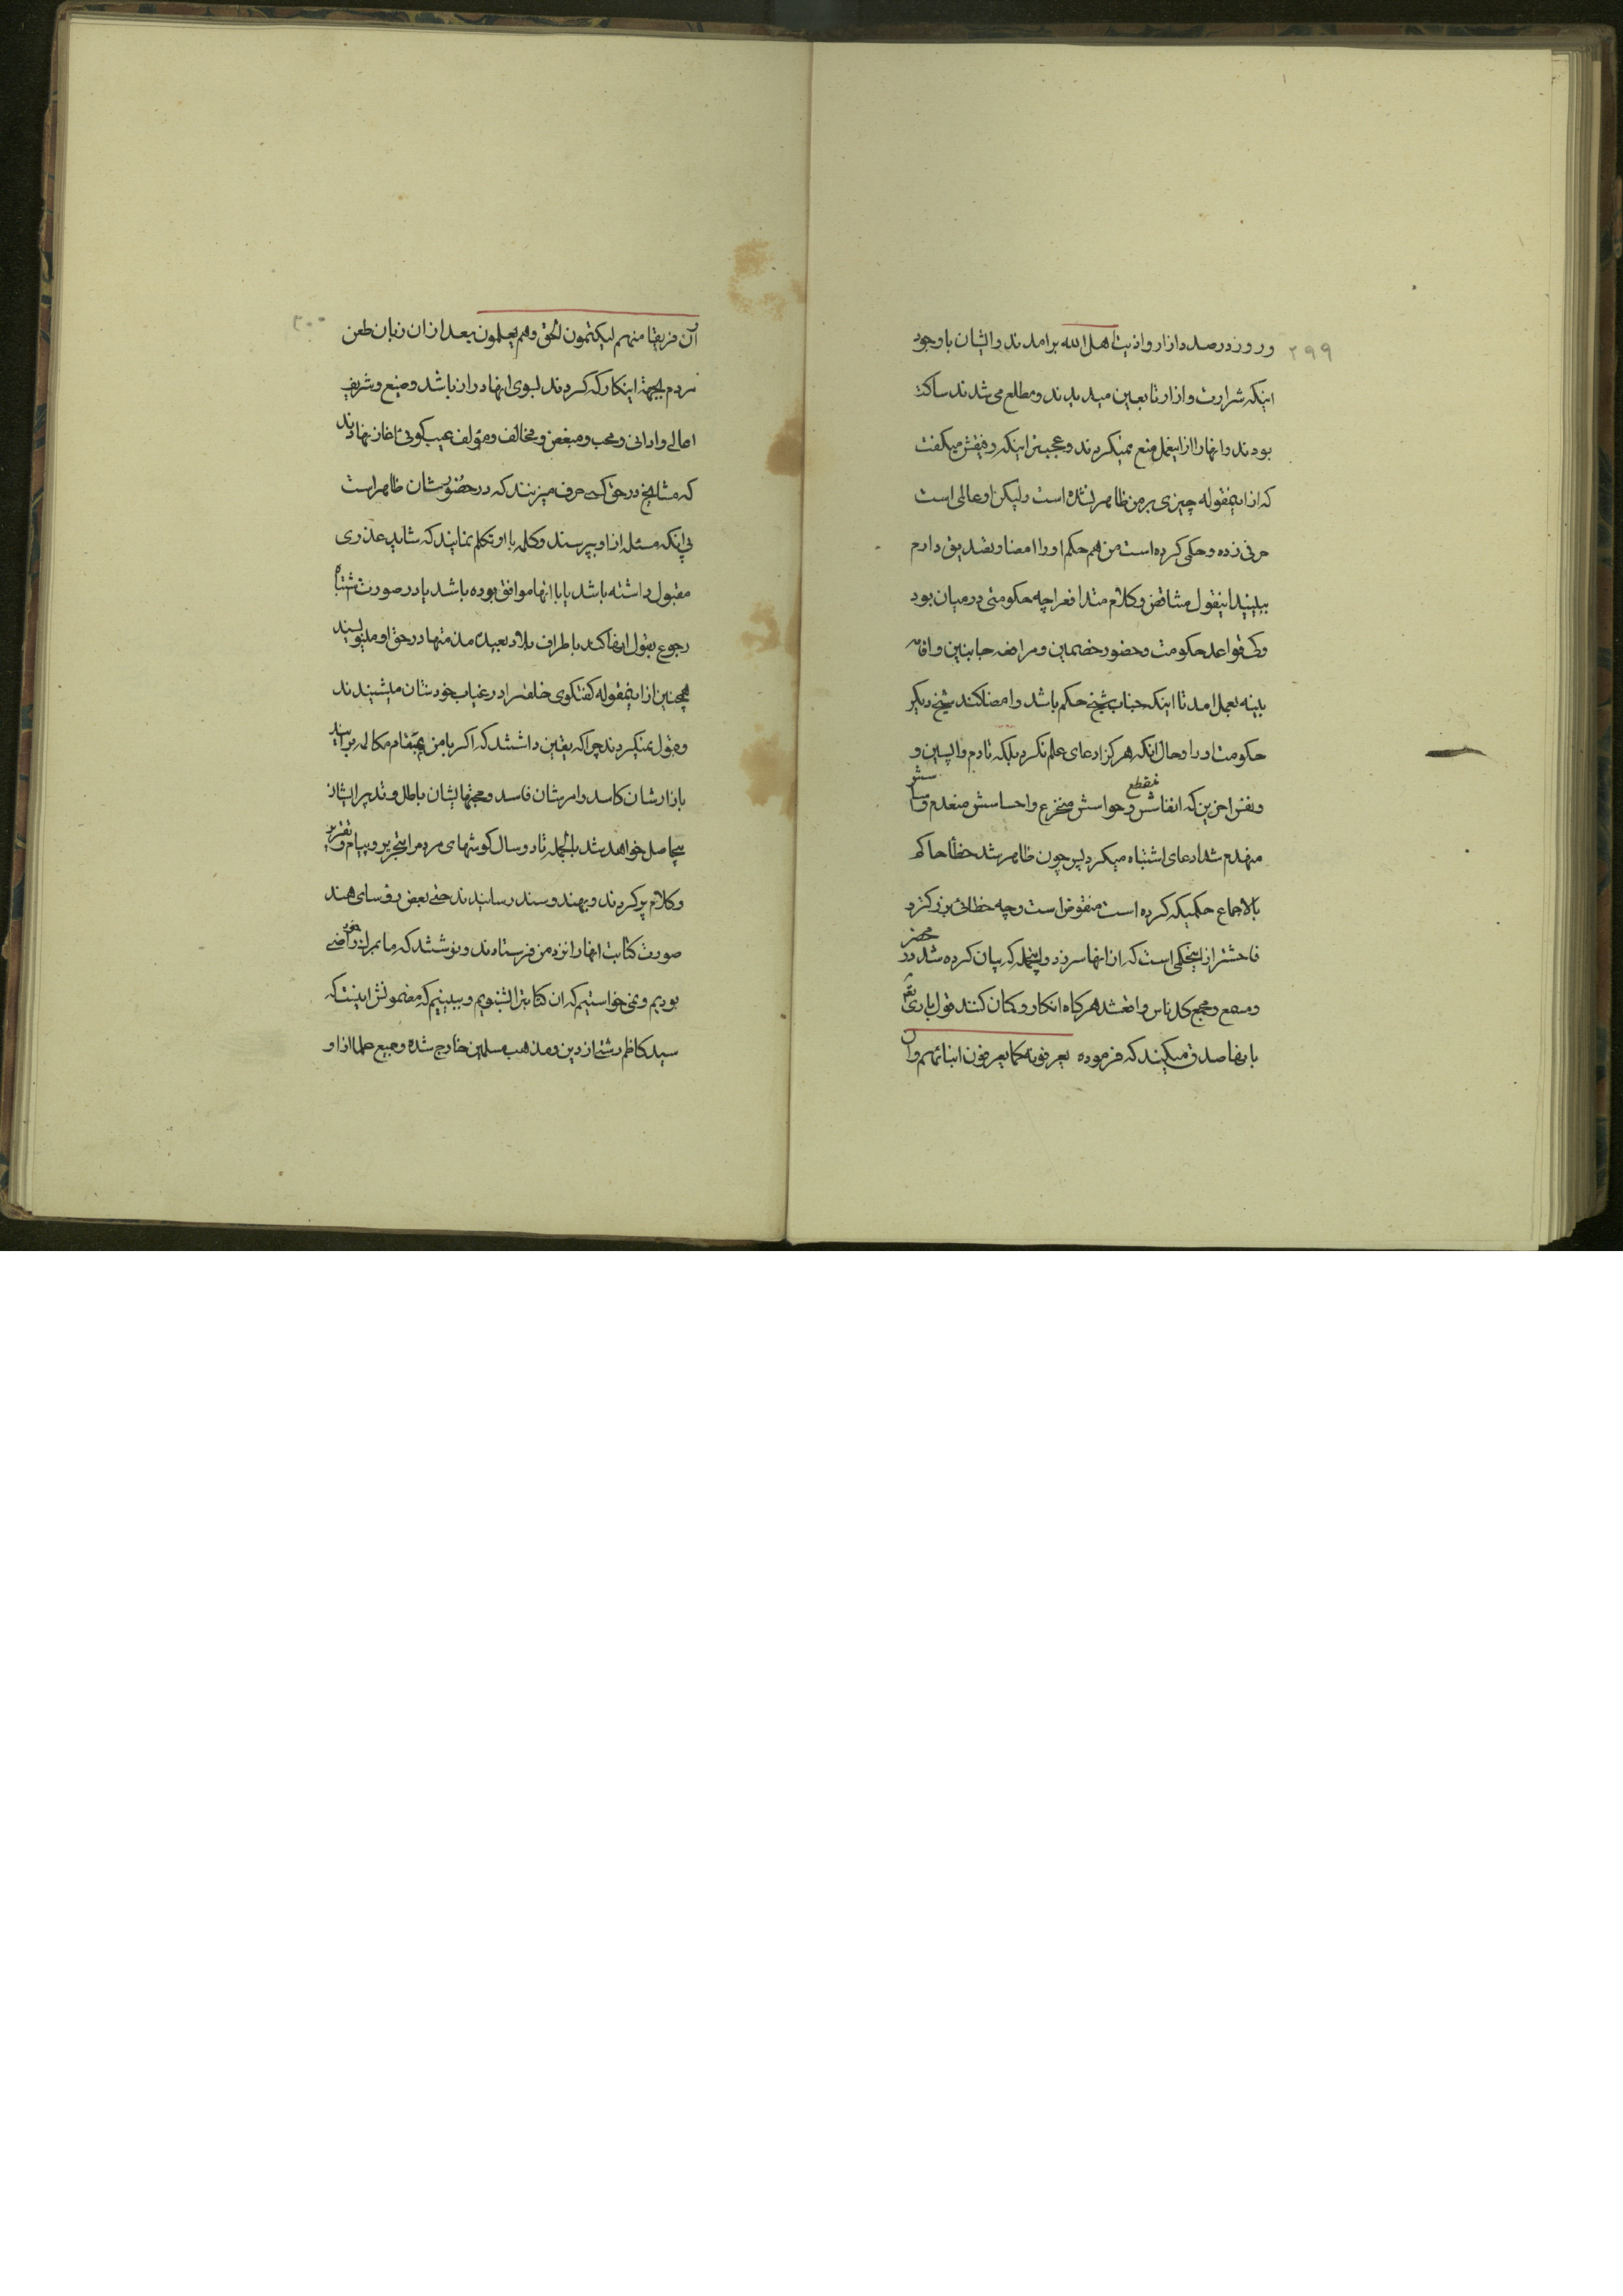 ۲۹۹
و روز در صدد ازار و اذیت اهل الله برامدند و ایشان با وجود
اینکه شرارت و ازار تابعین میدیدند و مطلع می شدند ساکت
بودند و انها را از اینعمل منع نمیکردند و عجبتر اینکه رفیقش میکفت
که از اینمقوله چیزی بر من ظاهر نشده است ولیکن او عالی است
حرفی زده و حکمی کرده است من هم حکم او را امضا و تصدیق دارم
ببینید اینقول متناقض و کلام متدافع را چه حکومتی در میان بود
و کی قواعد حکومت و حضور خصمین و مرافعه جانبین و اقامه
بینه بعمل امد تا اینکه جناب شیخ حکم باشد و امضا کنند شیخ دیکر
حکومت او را و حال انکه هرکز ادعای علم نکرد بلکه تا دم واپسین و
و نفس اخرین که انفاسش منقطع و حواسش منخرع و احساسش منعدم و اساسش
منهدم شد ادعای اشتباه میکرد پس چون ظاهر شد خطأ حاکم
بالاجماع حکمیکه کرده است منقوض است و چه خطائی بزرکتر و
فاحشتر از اینحکمی است که از انها سر زد و اینجمله که بیان کرده شد در محضر
و مسمع و مجمع کل ناس واقع شد هرکاه انکار و کتمان کنند قول باری تعالی
بانها صدق میکند که فرموده یعرفونه کما یعرفون ابنائهم وان
۳۰۰
ان فریقا منهم لیکتمون الحق وهم یعلمون بعد از ان زبان طعن
مردم بجهة اینکار که کردند بسوی انها دراز باشد وضیع و شریف
اعالی و ادانی و محب و مبغض و مخالف و مؤلف عیب کوئی اغاز نهادند
که مشایخ در حق کسی حرف میزنند که در حضورشان ظاهر است
بی انکه مسئله از او بپرسند و کلمه با او تکلم نمایند که شاید عذری
مقبول داشته باشد یا با انها موافق بوده باشد یا در صورت اشتباه
رجوع بقول انها کند باطراف بلاد بعیده مذمتها در حق او مینویسند
همچنین از اینمقوله کفتکوی خلق را در غیاب خودشان میشنیدند
و قبول نمیکردند چرا که یقین داشتند که اکر با من بمقام مکالمه برایند
بازارشان کاسد و امرشان فاسد و حجتهایشان باطل و تدبیر ایشان
بیحاصل خواهد شد بالجمله تا دو سال کوشهای مردم را بتحریر و پیام و تقریر
و کلام پر کردند و بهند و سند رسانیدند حتی بعض رؤسای هند
صورت کتابت انها را نزد من فرستادند و نوشتند که ما بمراد خود راضی
بودیم و نمی خواستیم که ان کتابترا بشنویم و ببینیم که مضمونش اینست که
سید کاظم رشتی از دین و مذهب مسلمین خارج شده و جمیع علما از او